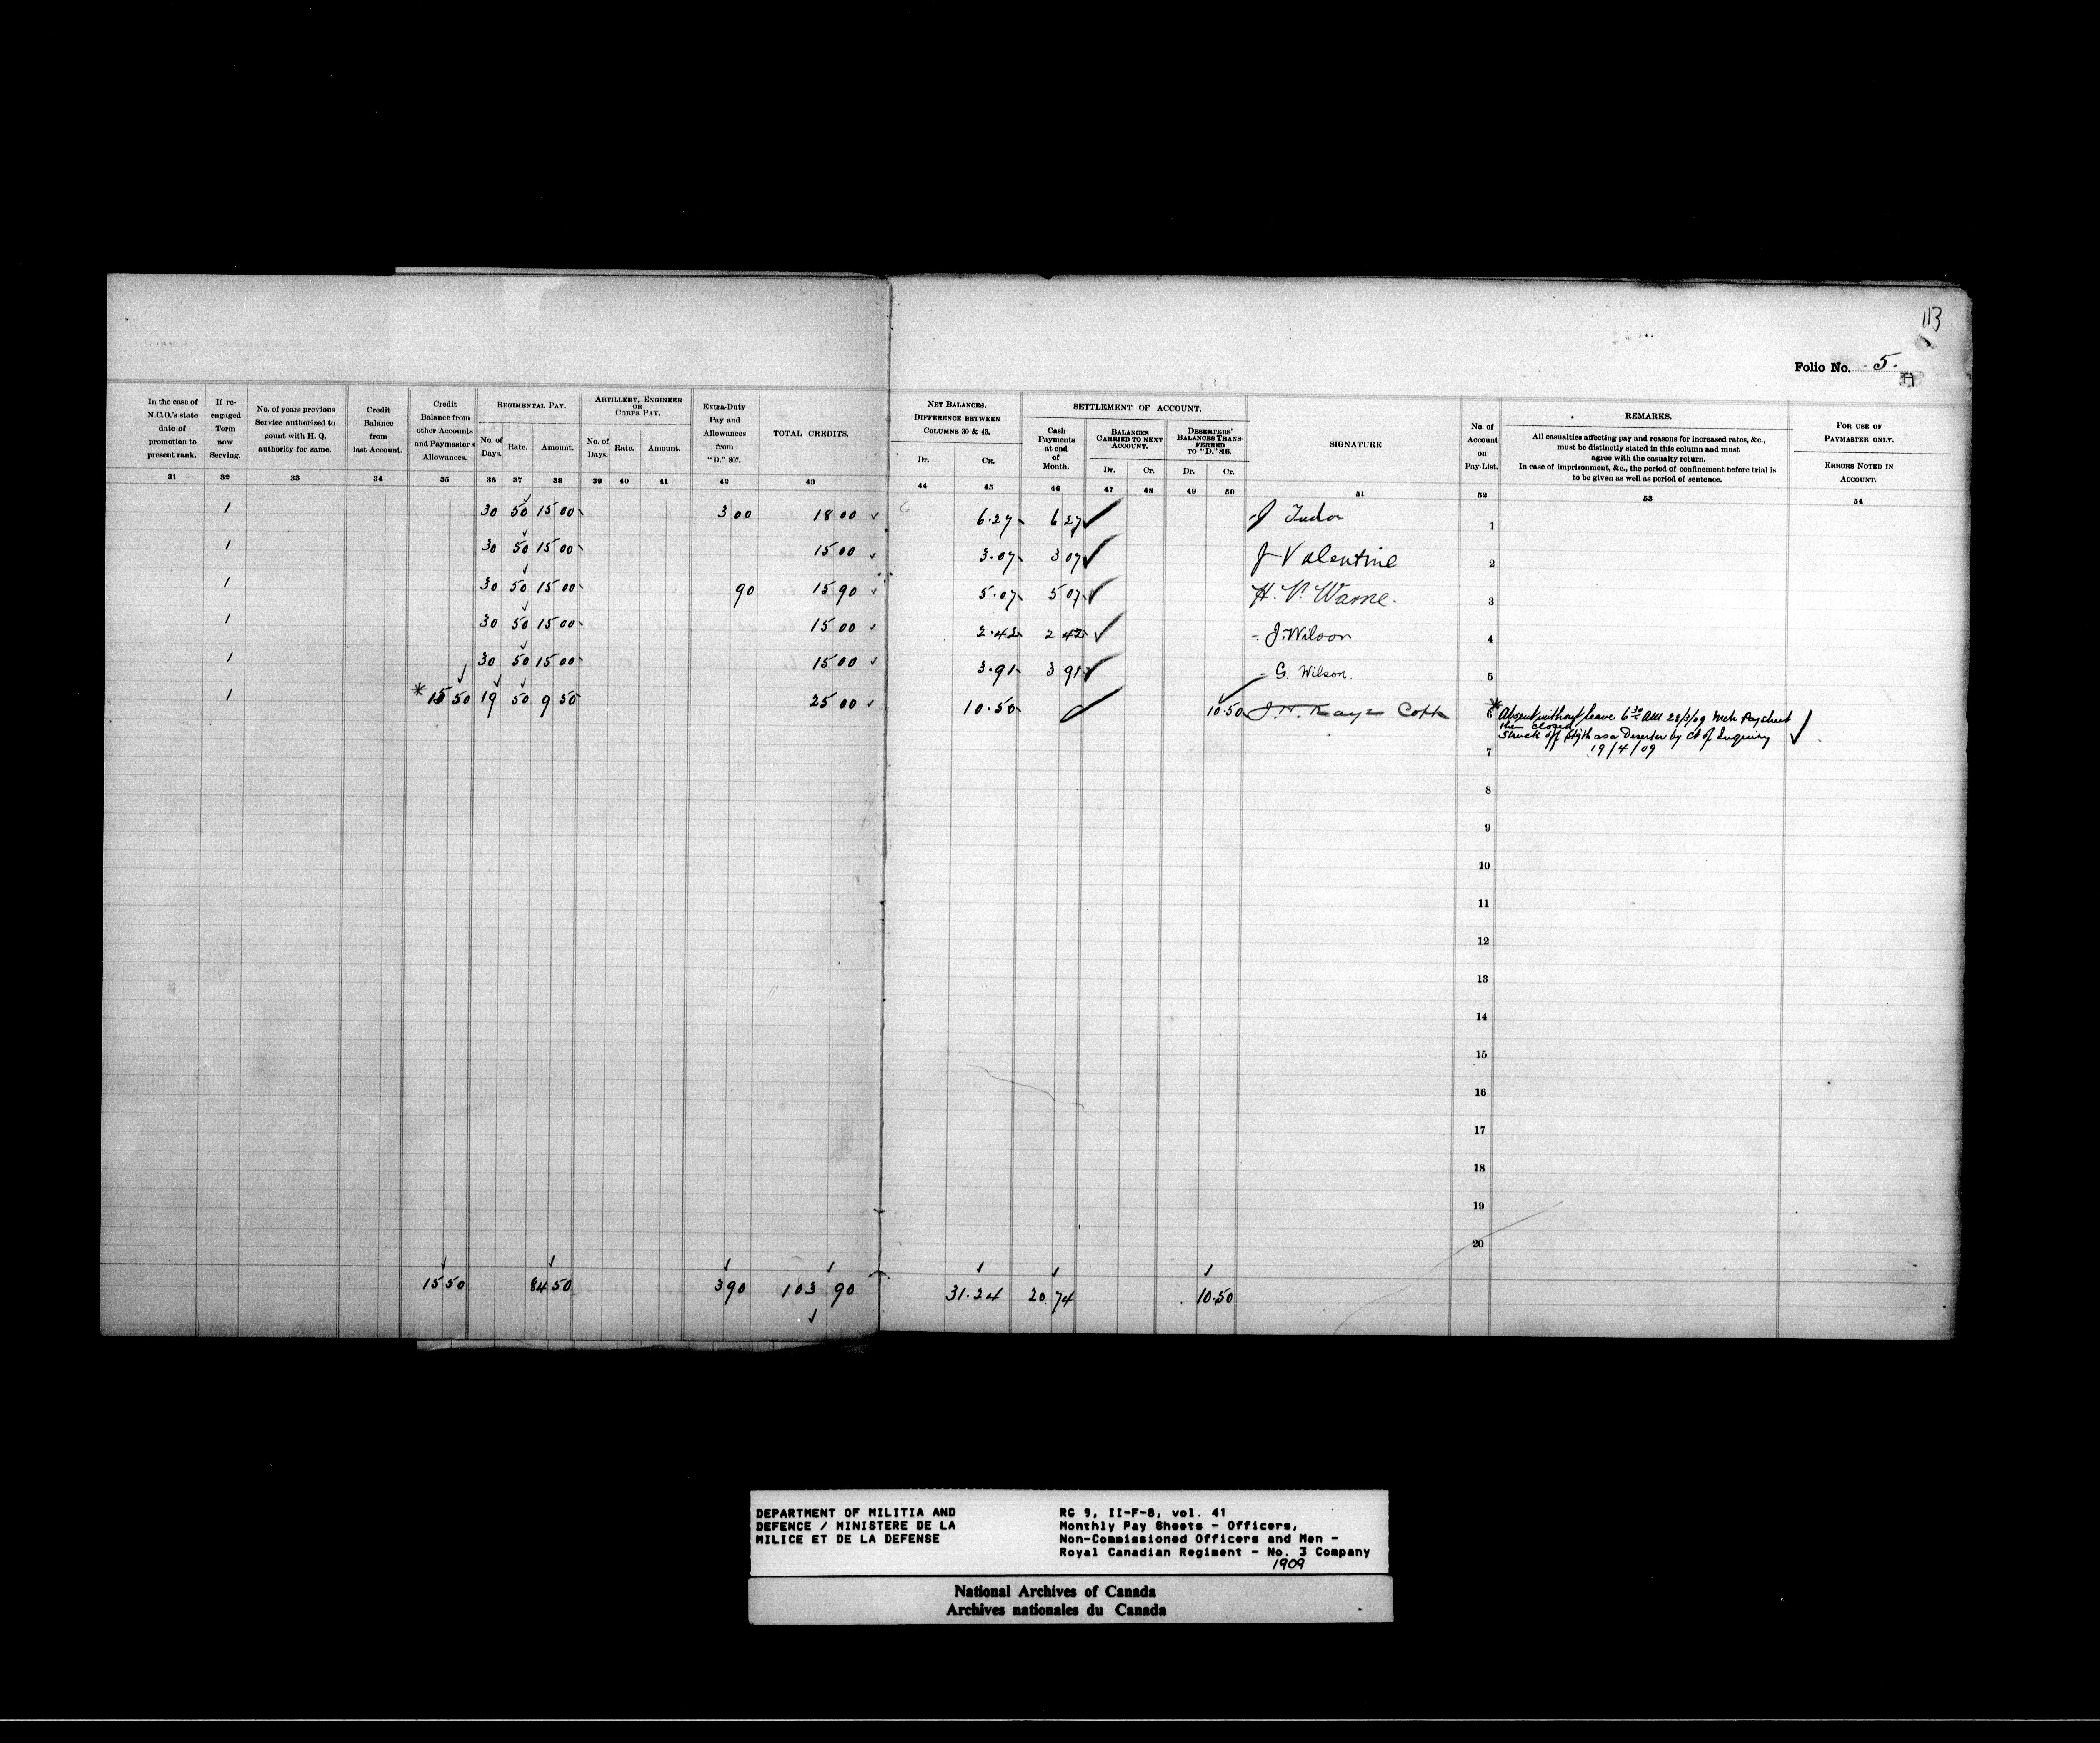 113
Folio No. 5.
In the case of N.C.O.'s state date of promotion to present rank.
If re-engaged Term now Serving.
No. of years previous Service authorized to count with H. Q. authority for same.
Credit Balance from last Account.
Credit Balance from other Accounts and Paymaster's Allowances.
REGIMENTAL PAY.
No. of Days. Rate. Amount.
ARTILLERY, ENGINEER OR CORPS PAY.
No. of Days. Rate. Amount.
Extra-Duty Pay and Allowances from "D." 807.
TOTAL CREDITS.
NET BALANCES. DIFFERENCE BETWEEN COLUMNS 30 & 43.
Dr. Cr.
SETTLEMENT OF ACCOUNT.
Cash Payments at end of Month.
BALANCES CARRIED TO NEXT ACCOUNT.
Dr. Cr.
DESERTERS' BALANCES TRANSFERRED TO "D." 806.
Dr. Cr.
SIGNATURE
No. of Account on Pay-List.
REMARKS.
All casualties affecting pay and reasons for increased rates, &c.,
must be distinctly stated in this column and must
agree with the casualty return.
In case of imprisonment, &c., the period of confinement before trial is
to be given as well as period of sentence.
FOR USE OF PAYMASTER ONLY.
ERRORS NOTED IN ACCOUNT.
31 32 33 34 35 36 37 38 39 40 41 42 43 44 45 46 47 48 49 50 51 52 53 54
1 30 50 15 00 3 00 18 00 6.27 6 27 J Tudor 1
1 30 50 15 00 15 00 3.07 3 07 J Valentine 2
1 30 50 15 00 90 15 90 5.07 5 07 H. V. Warne. 3
1 30 50 15 00 15 00 2.42 2 42 J. Wilson 4
1 30 50 15 00 15 00 3.91 3 91 G. Wilson. 5
1 * 15 50 19 50 9 50 25 00 10.50 10.50 6
* Absent without leave 6 30 AM 28/3/09 Mch Paysheet
then closed
Struck off Stgth as a Deserter by Ct of Inquiry
19/4/09
7
8
9
10
11
12
13
14
15
16
17
18
19
20
15 50 84 50 3 90 103 90 31.24 20.74 10.50
DEPARTMENT OF MILITIA AND
DEFENCE / MINISTERE DE LA
MILICE ET DE LA DEFENSE
RG 9, II-F-8, vol. 41
Monthly Pay Sheets - Officers,
Non-Commissioned Officers and Men -
Royal Canadian Regiment - No. 3 Company
1909
National Archives of Canada
Archives nationales du Canada